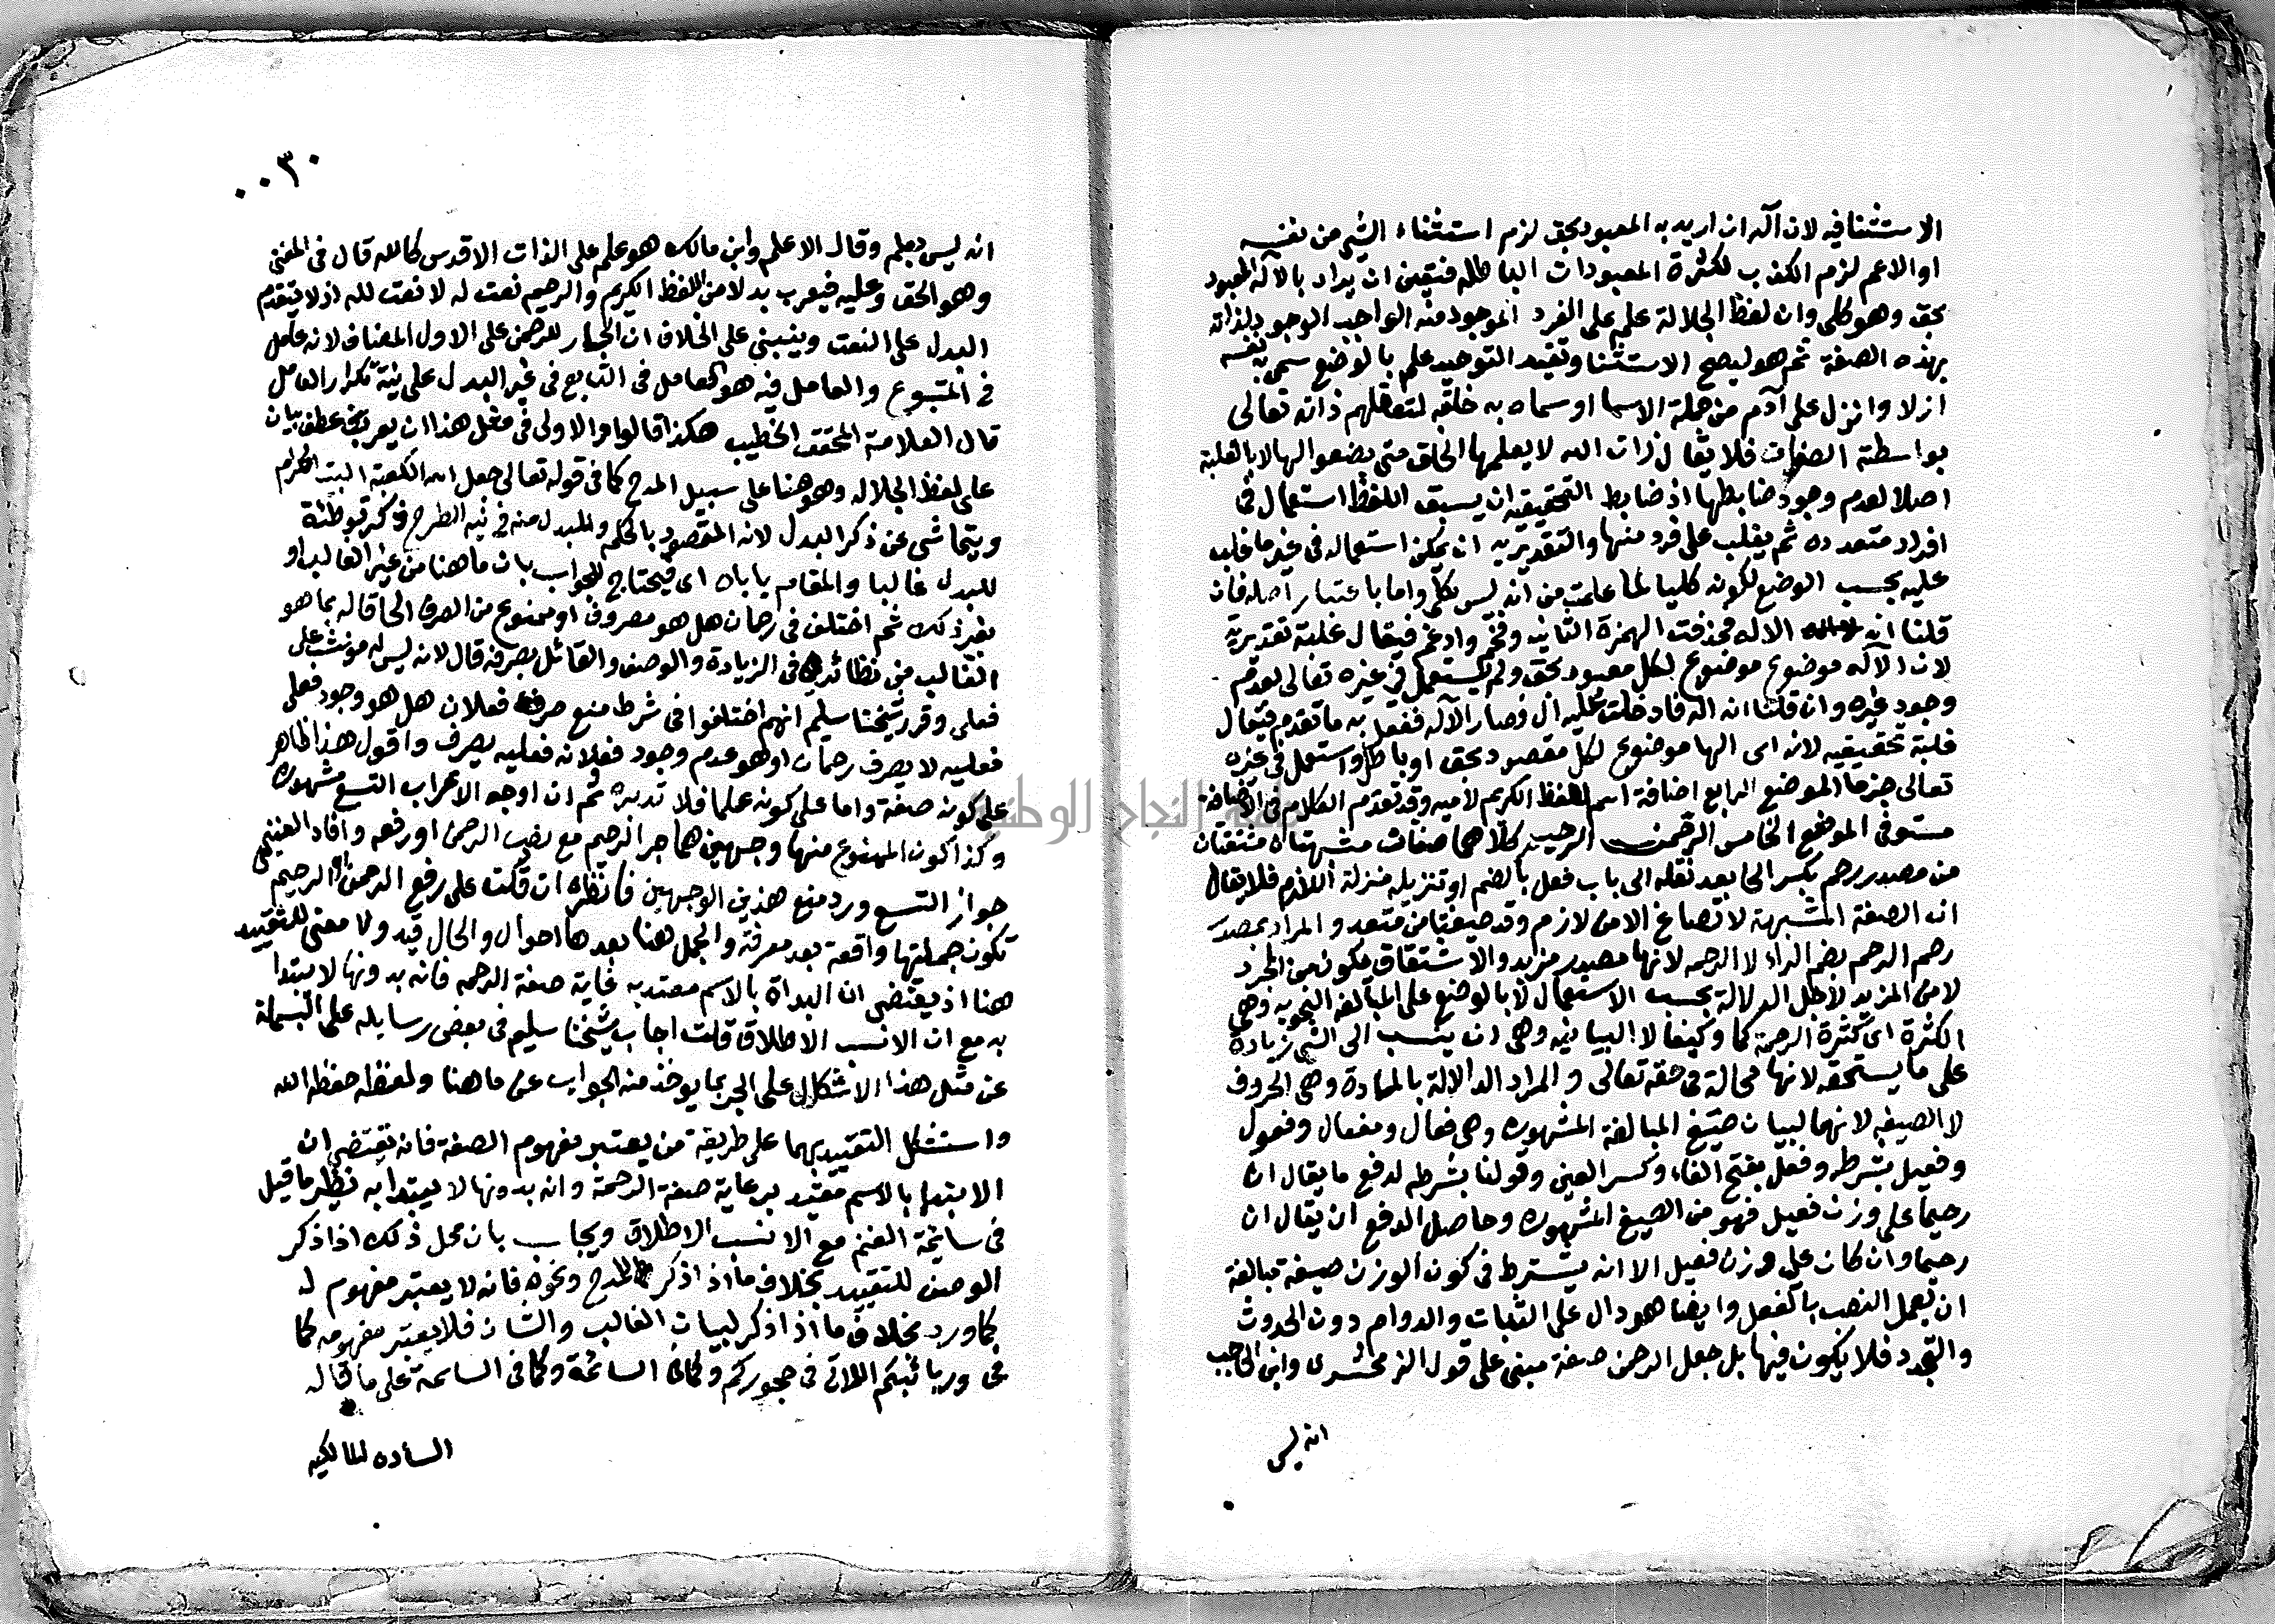 الاستثنا فيه لان آله ان اريد به المعبود بحق لزم استثناء الشي من نفسه
او الاعم لزم الكذب لكثرة المعبودات الباطله فتعين ان يراد بالاله المعبود
بحق وهو كلي وان لفظ الجلالة علم على الفرد الموجود منه الواجب الوجود لذاته
بهذه الصفة ثم هو ليصح الاستثنا وتفيد التوحيد علم بالوضع سمى به نفسه
ازلا وانزل على آدم من جملة الاسما او سماه به خلقه لتعقلهم ذاته تعالى
بواسطة الصفات فلا يقال ذات الله لا يعلمها الخلق حتى يضعوا لها لا بالغلبة
اصلا لعدم وجود ضابطها اذ ضابط التحقيقيه ان يسبق اللفظ استعمال في
افراد متعدده ثم يغلب على فرد منها والتقديريه ان يمكن استعماله في غير ما غلب
عليه بحسب الوضع لكونه كليا لما علمت من انه ليس بكلي واما باعتبار اصله فان
قلنا انه الاله فحذفت الهمزة الثانيه وفخم وادغم فيقال غلبة تقديرية
لان الآله موضوع موضوع لكل معبود بحق ولم يستعمل في غيره تعالى لعدم
وجود غيره وان قلنا انه اله فادخلت عليه ال فصار الآله ففعل به ما تقدم فيقال
غلبة تحقيقيه لانه اى الها موضوع لكل مقصود بحق او باطل واستعمل في غيره
تعالى جزما الموضع الرابع اضافة اسم للفظ الكريم لاميه وقد تقدم الكلام في الاضافة
مستوفى الموضع الخامس الرحمن الرحيم كلاهما صفات مشبهتان مشتقتان
من مصدر رحم بكسر الحا بعد نقله الى باب فعل بالضم او تنزيله منزلة اللازم فلا يقال
ان الصفة المشبهة لا تصاغ الا من لازم وقد صيغتا من متعد والمراد بمصدر
رحم الرحم بضم الراء لا الرحمه لانها مصدر مزيد والاشتقاق يكون من المجرد
لا من المزيد لاجل الدلالة بحسب الاستعمال لا بالوضع على المبالغة النحويه وهي
الكثرة اى كثرة الرحمة كما وكيفا لا البيانيه وهي ان ينسب الى الشي زيادة
على ما يستحقه لانها محالة في حقه تعالى والمراد الدلالة بالمادة وهي الحروف
لا الصيغه لانهما لبيان صيغ المبالغة المشهوره وهي فعال ومفعال وفعول
وفعيل بشرطه وفعل بفتح الفاء وكسر العين وقولنا بشرطه لدفع ما يقال ان
رحيما على وزن فعيل فهو من الصيغ المشهوره وحاصل الدفع ان يقال ان
رحيما وان كان على وزن فعيل الا انه يشترط في كون الوزن صيغة مبالغة
ان يعمل النصب بالفعل وايضا هو دال على الثبات والدوام دون الحدوث
والتجدد فلا يكون فيها بل جعل الرحمن صفة مبني على قول الزمخشرى وابن الحاجب
انه ليس
٠٠٣٠
انه ليس بعلم وقال الاعلم وابن مالك هو علم على الذات الاقدس كالله قال في المغني
وهو الحق وعليه فيعرب بدلا من اللفظ الكريم والرحيم نعت له لا نعت لله اذ لا يتقدم
البدل على النعت وينبني على الخلاف ان الجار للرحمن على الاول المضاف لانه عامل
في المتبوع والعامل فيه هو العامل في التابع في غير البدل على نية تكرار العامل
قال العلامة المحقق الخطيب هكذا قالوا والاولى في مثل هذا ان يعرب عطف بيان
على لفظ الجلاله وهو هنا على سبيل المدح كما في قوله تعالى جعل الله الكعبة البيت الحرام
ويتحاشى عن ذكر البدل لانه المقصود بالحكم والمبدل منه في نيه الطرح فذكره توطئة
للبدل غالبا والمقام ياباه اى فيحتاج للجواب بان ما هنا من غير الغالب او
بغير ذلك ثم اختلف في رحمان هل هو مصروف او ممنوع من الصرف الحاقا له بما هو
الغالب من نظائره في الزيادة والوصف والقائل بصرفه قال لانه ليس له مونث على
فعلى وقرر شيخنا سليم انهم اختلفوا في شرط منع صرف فعلان هل هو وجود فعلى
فعليه لا يصرف رحمان او هو عدم وجود فعلانه فعليه يصرف واقول هذا ظاهر
على كونه صفة واما على كونه علما فلا تدبره ثم ان اوجه الاعراب التسع مشهوره
وكذا كون الممنوع منها وجهين هما جر الرحيم مع نصب الرحمن او رفعه وافاد العنيني
جواز التسع ورد منع هذين الوجهين فانظره ان قلت على رفع الرحمن او الرحيم
تكون جملتها واقعة بعد معرفة والجمل هنا بعدها احوال والحال قيد ولا معنى للتقييد
هنا اذ يقتضي ان البداة بالاسم مقتد به غاية صفة الرحمه فانه بدونها لا يبتدا
به مع ان الانسب الاطلاق قلت اجاب شيخنا سليم في بعض رسايله على البسملة
عن مثل هذا الاشكال على الجر بما يوخذ منه الجواب عن ما هنا ولفظه حفظه الله
واستشكل التقييد بهما على طريقة من يعتبر مفهوم الصفة فانه يقتضي ان
الابتدا بالاسم مقيد برعاية صفة الرحمة وانه بدونها لا يبتدا به نظير ما قيل
في سائمة الغنم مع الانسب الاطلاق ويجاب بان محل ذلك اذا ذكر
الوصف للتقييد بخلاف ما اذا ذكر للمدح ونحوه فانه لا يعتبر مفهوم له
كما ورد بخلاف ما اذا ذكر لبيان الغالب والشان فلا يعتبر مفهومه كما
في وربائبكم اللاتي في حجوركم وكما في السائمة على ما قاله
الساده المالكيه
جامعة النجاح الوطنية